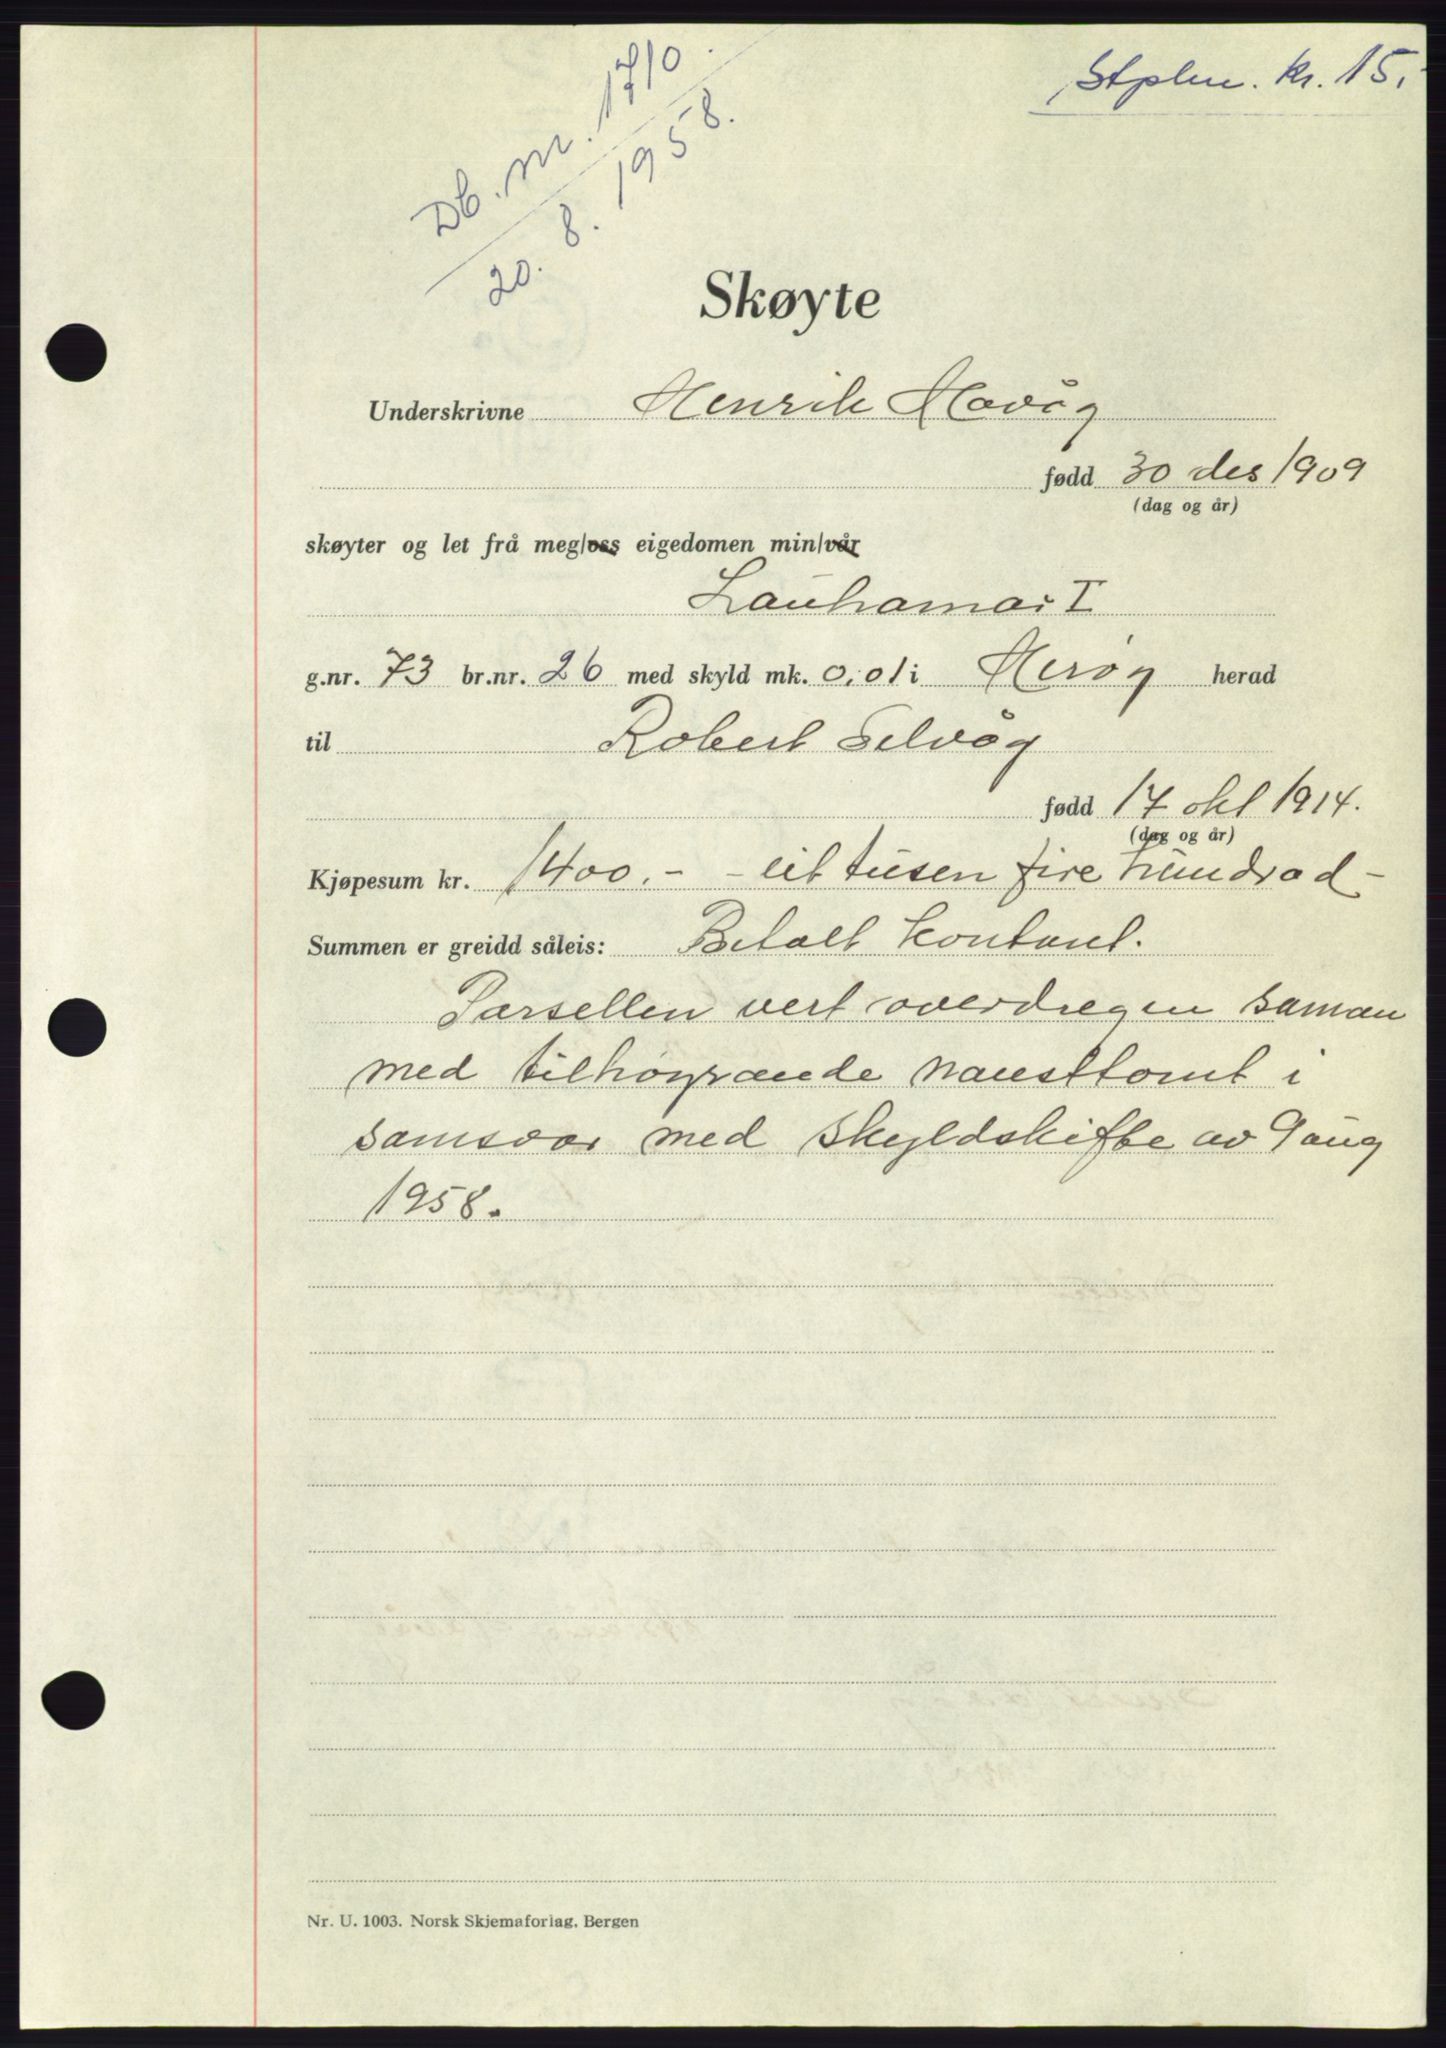 Stplm. kr. 15.
Db. nr. 1710
20. 8. 1958.
Skøyte
Underskrivne Henrik Hovåg
fødd 30 des 1909
(dag og år)
skøyter og let frå meg/oss eigedomen min/vår
Lauhamar I
g.nr. 73 br.nr. 26 med skyld mk. 0,01 i Herøy herad
til Robert Selvåg
fødd 17 okt 1914.
(dag og år)
Kjøpesum kr. 1400.- - eit tusen fire hundrad -
Summen er greidd såleis: Betalt kontant.
Parsellen vert overdregen saman
med tilhøyrande nausttomt i
samsvar med skyldskifte av 9 aug
1958.
Nr. U. 1003. Norsk Skjemaforlag, Bergen